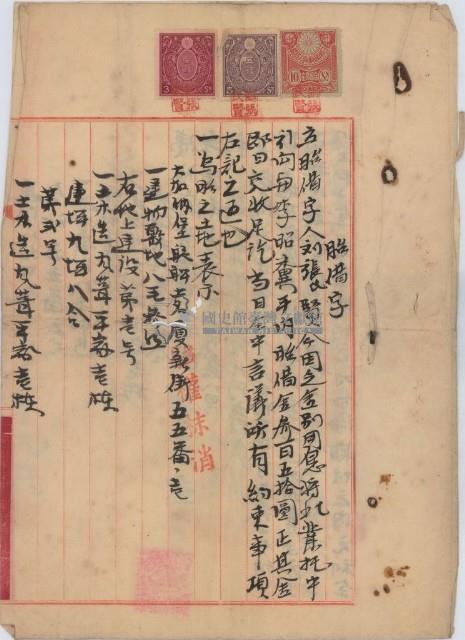 胎借字
立胎借字人刘張氏緊今因乏金別用愿將此業托中
引向與李昭
手內胎借金參百五拾圓正其金
即日交收足訖当日仝中言議所有約束事項
左記之通也
一為胎之土地表示
大加蚋堡艋舺
厦新街五五番
一建物敷地八毛
右地上建設第壱号
一土木造瓦葺平家壱棟
建坪九坪八合
第弐号
一土木造瓦葺平家壱棟
抹消
國史館臺灣文獻館
TAIWAN HISTORICA
3 Sn
5 Sn
10 Sn